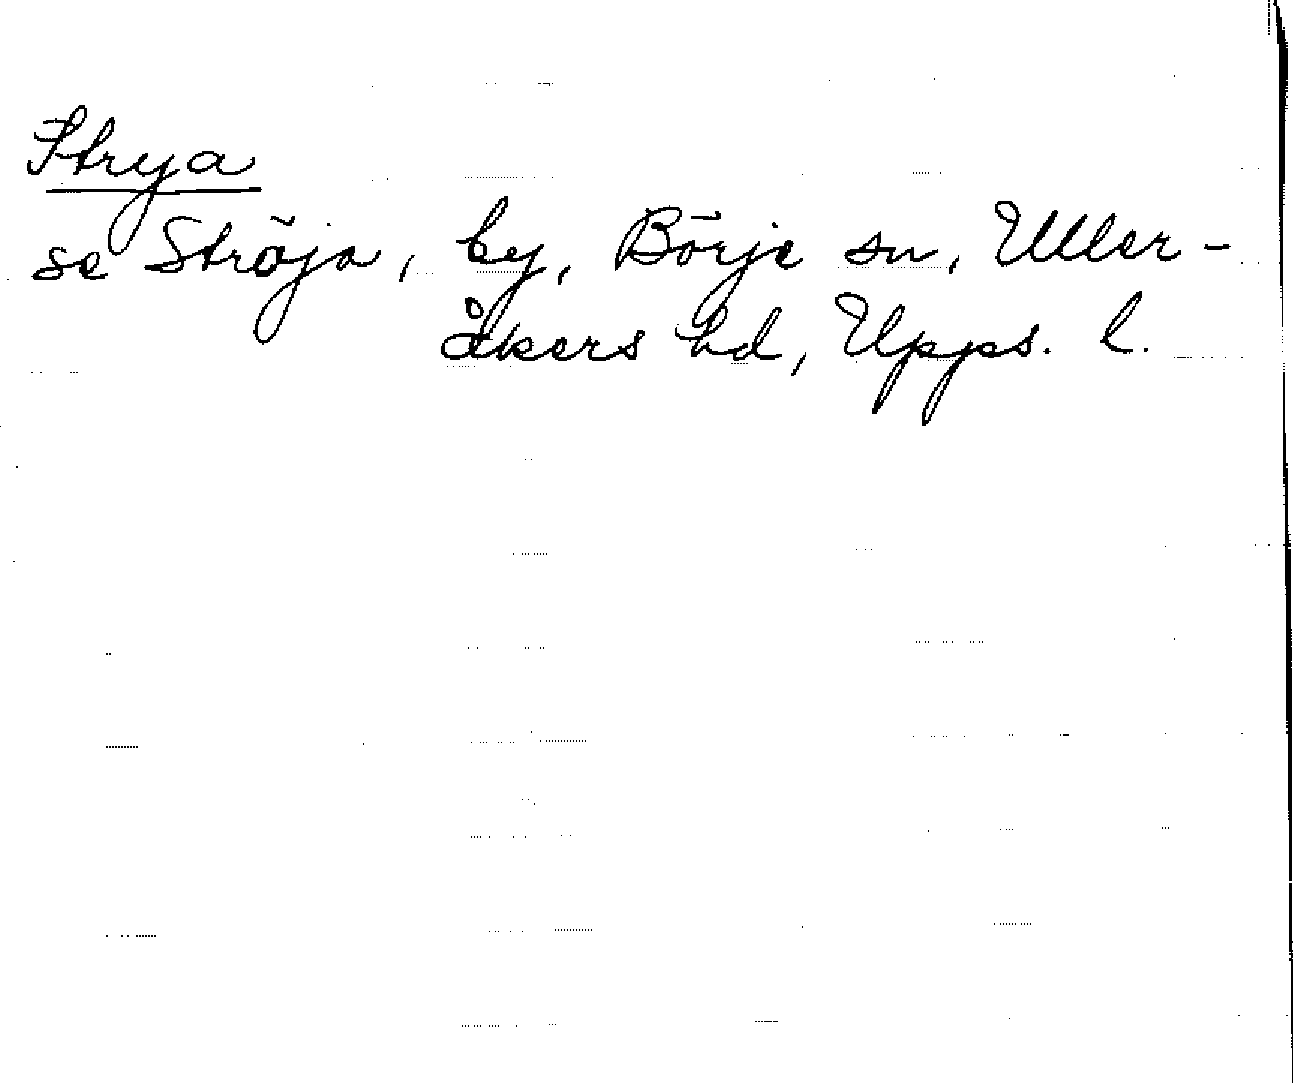 Strya
se Ströja, by, Börje sn, Uller-
åkers hd, Upps. l.